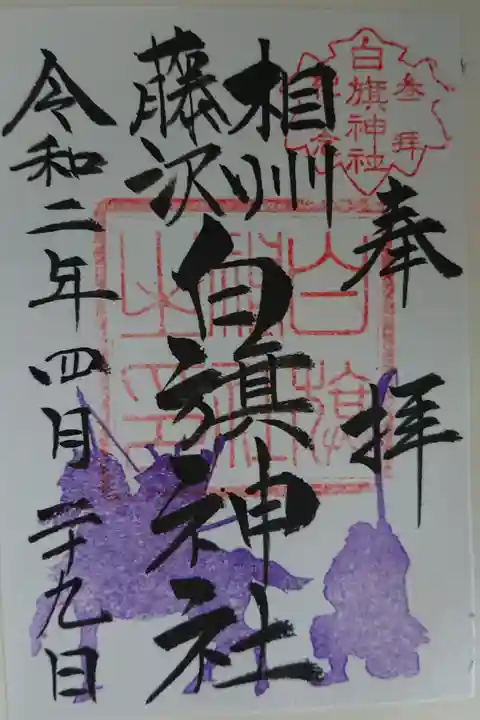 参拝
白旗神社
記念
奉拝
相州
藤沢
白旗神社
令和二年四月二十九日
白旗
神社
之印